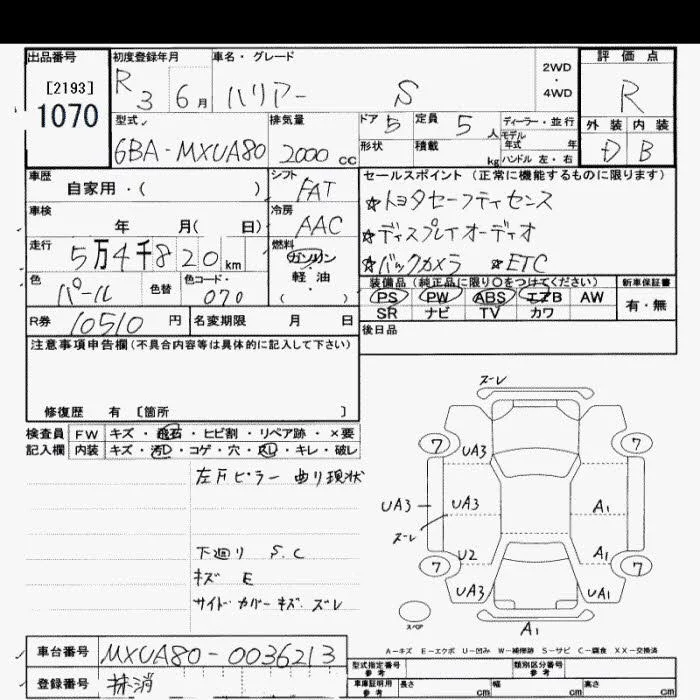 出品番号 初度登録年月 車名・グレード 評価点
[2193] R 3 6月 ハリアー S 2WD・4WD R
1070
型式 排気量 ドア 定員 ディーラー・並行 外装 内装
6BA-MXUA80 2000 cc 5 5人 モデル年式 年 D B
形状 積載 kg ハンドル 左・右
車歴 シフト セールスポイント (正常に機能するものに限ります)
自家用・( ) FAT ☆トヨタセーフティセンス
車検 冷房
年 月( 日) AAC ☆ディスプレイオーディオ
走行 燃料
5万4千820km ガソリン ☆バックカメラ ☆ETC
軽・油
・( )
色 色替 色コード・ 装備品(純正品に限り○をつけてください) 新車保証書
パール 070 PS PW ABS エアB AW 有・無
SR ナビ TV カワ
R券 10510円 名変期限 月 日 後日品
注意事項申告欄(不具合内容等は具体的に記入して下さい)
修復歴 有 [箇所 ]
検査員 FW キズ・飛石・ヒビ割・リペア跡・×要
記入欄 内装 キズ・汚レ・コゲ・穴・スレ・キレ・破レ
左Fピラー 曲り現状
下廻り S.C
キズ E
サイドカバーキズ.ズレ
ズレ
7 7
UA3
UA3 UA3 A1
ズレ
U2 A1
7 7
UA3 UA1
スペア A1
A-キズ E-エクボ U-凹み W-補修跡 S-サビ C-腐食 XX-交換済
車台番号 MXUA80-0036213 型式指定番号 参考 類別区分番号 参考
登録番号 抹消 車庫証明用 参考 長さ cm 幅 cm 高さ cm